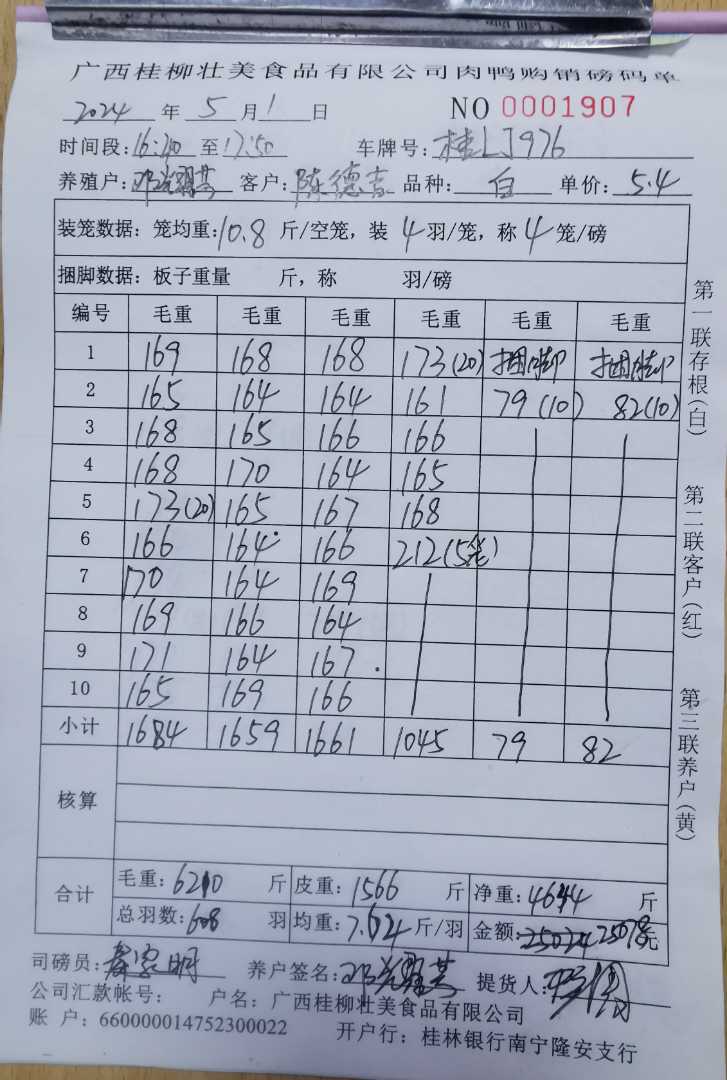 广西桂柳壮美食品有限公司肉鸭购销磅码单
2024 年 5 月 1 日 NO 0001907
时间段:16:20 至 17:50 车牌号: 桂LJ976
养殖户: 客户: 陈德吉 品种: 白 单价: 5.4
装笼数据: 笼均重: 10.8 斤/空笼, 装 4 羽/笼, 称 4 笼/磅
捆脚数据: 板子重量 斤, 称 羽/磅
编号 毛重 毛重 毛重 毛重 毛重 毛重
1 169 168 168 173(20) 捆脚 捆脚
2 165 164 164 161 79(10) 82(10)
3 168 165 166 166
4 168 170 164 165
5 173(20) 165 167 168
6 166 164 166 212(5笼)
7 170 164 169
8 169 166 164
9 171 164 167
10 165 169 166
小计 1684 1659 1661 1045 79 82
核算
合计 毛重: 6210 斤 皮重: 1566 斤 净重: 4644 斤
总羽数: 608 羽 均重: 7.64 斤/羽 金额: 25078元
司磅员: 养户签名: 提货人:
公司汇款帐号: 户名: 广西桂柳壮美食品有限公司
账 户: 660000014752300022 开户行: 桂林银行南宁隆安支行
第一联存根(白)
第二联客户(红)
第三联养户(黄)